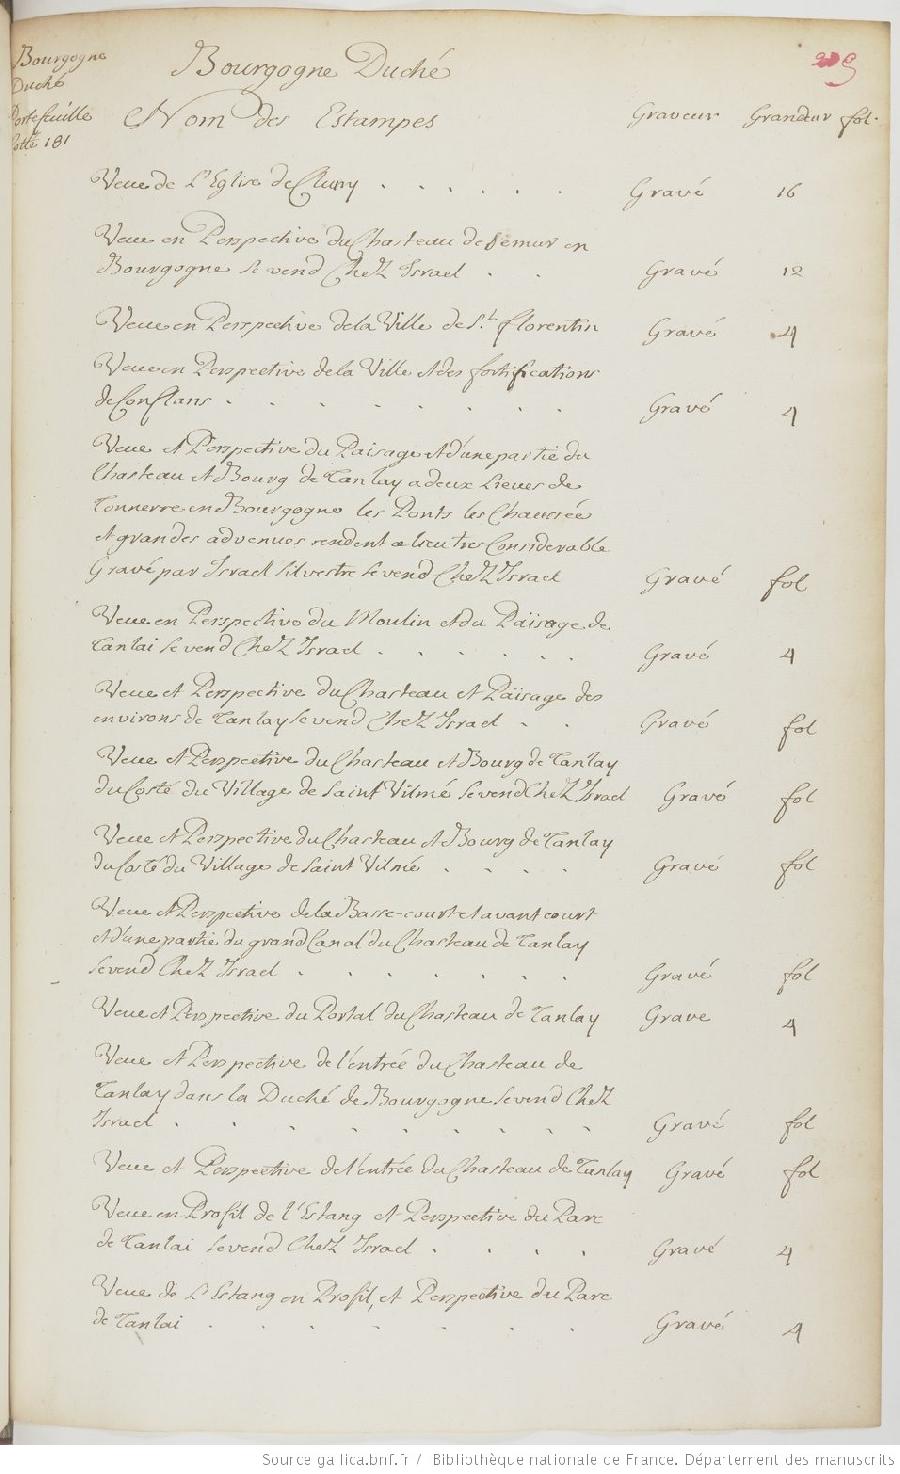 Bourgogne Duché Portefeuille Cotté 181
Bourgogne Duché
Nom des Estampes Graveur Grandeur fol.
Veue de L'Eglise de Cluny . . . . . . Gravé 16
Veue en Perspective du Chasteau de Semur en
Bourgogne se vend Chez Israel . . Gravé 12
Veue en Perspective de la Ville de S.t florentin Gravé 4
Veue en Perspective de la Ville et des fortifications
de Conflans . . . . . . . Gravé 4
Veue et Perspective du Païsage et d'une partie du
Chasteau et Bourg de Tanlay a deux Lieues de
Tonnerre en Bourgogne les Ponts les Chaussée
et grandes advenues rendent ce lieu tres Considerable
Gravé par Israel Silvestre se vend Chez Israel Gravé fol
Veue en Perspective du Moulin et du Païsage de
Tanlai se vend Chez Israel . . . . . . Gravé 4
Veue et Perspective du Chasteau et Païsage des
environs de Tanlay se vend Chez Israel . . Gravé fol
Veue et Perspective du Chasteau et Bourg de Tanlay
du Costé du Village de Saint Vilmé se vend Chez Israel Gravé fol
Veue et Perspective du Chasteau et Bourg de Tanlay
du Costé du Village de Saint Vilmé . . . . Gravé fol
Veue et Perspective de la Basse-court et avant court
et d'une partie du grand Canal du Chasteau de Tanlay
se vend Chez Israel . . . . . . . Gravé fol
Veue et Perspective du Portal du Chasteau de Tanlay Gravé 4
Veue et Perspective de l'entrée du Chasteau de
Tanlay dans la Duché de Bourgogne se vend Chez
Israel . . . . . . . . . Gravé fol
Veue et Perspective de l'entrée du Chasteau de Tanlay Gravé fol
Veue en Profil de l'Estang et Perspective du Parc
de Tanlai se vend Chez Israel . . . . Gravé 4
Veue de L'Estang en Profil, et Perspective du Parc
de Tanlai . . . . . . Gravé 4
Source gallica.bnf.fr / Bibliothèque nationale de France. Département des manuscrits